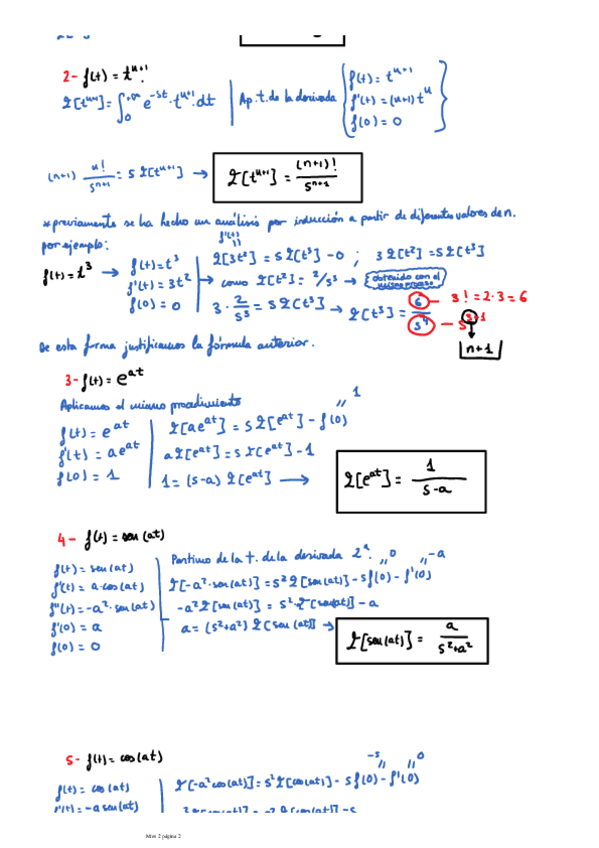 2- f(t) = t^{n+1}
ℒ[t^{n+1}] = ∫_0^{+∞} e^{-st}·t^{n+1} dt | Ap. t. de la derivada { f(t) = t^{n+1}
f'(t) = (n+1) t^n
f(0) = 0 }
(n+1) n!/s^{n+1} = s ℒ[t^{n+1}] → ℒ[t^{n+1}] = (n+1)!/s^{n+1}
* previamente se ha hecho un análisis por inducción a partir de diferentes valores de n.
por ejemplo:
f(t) = t^3 → f(t) = t^3
f'(t) = 3t^2
f(0) = 0
f'(t)
ℒ[3t^2] = s ℒ[t^3] - 0 ; 3 ℒ[t^2] = s ℒ[t^3]
→ como ℒ[t^2] = 2/s^3 → obtenido con el mismo proceso
3 · 2/s^3 = s ℒ[t^3] → ℒ[t^3] = 6/s^4
6 — 3! = 2·3 = 6
s^4 — s^{3+1}
n+1
De esta forma justificamos la fórmula anterior.
3- f(t) = e^{at}
Aplicamos el mismo procedimiento
f(t) = e^{at}
f'(t) = ae^{at}
f(0) = 1
1
ℒ[ae^{at}] = s ℒ[e^{at}] - f(0)
a ℒ[e^{at}] = s ℒ[e^{at}] - 1
1 = (s-a) ℒ[e^{at}] → ℒ[e^{at}] = 1/(s-a)
4- f(t) = sen(at)
f(t) = sen(at)
f'(t) = a·cos(at)
f''(t) = -a^2·sen(at)
f'(0) = a
f(0) = 0
Partimos de la t. de la derivada 2ª. 0 -a
ℒ[-a^2·sen(at)] = s^2 ℒ[sen(at)] - s f(0) - f'(0)
-a^2 ℒ[sen(at)] = s^2·ℒ[sen(at)] - a
a = (s^2+a^2) ℒ[sen(at)] → ℒ[sen(at)] = a/(s^2+a^2)
5- f(t) = cos(at)
f(t) = cos(at)
f'(t) = -a sen(at)
-s 0
ℒ[-a^2 cos(at)] = s^2 ℒ[cos(at)] - s f(0) - f'(0)
Mates 2 página 2